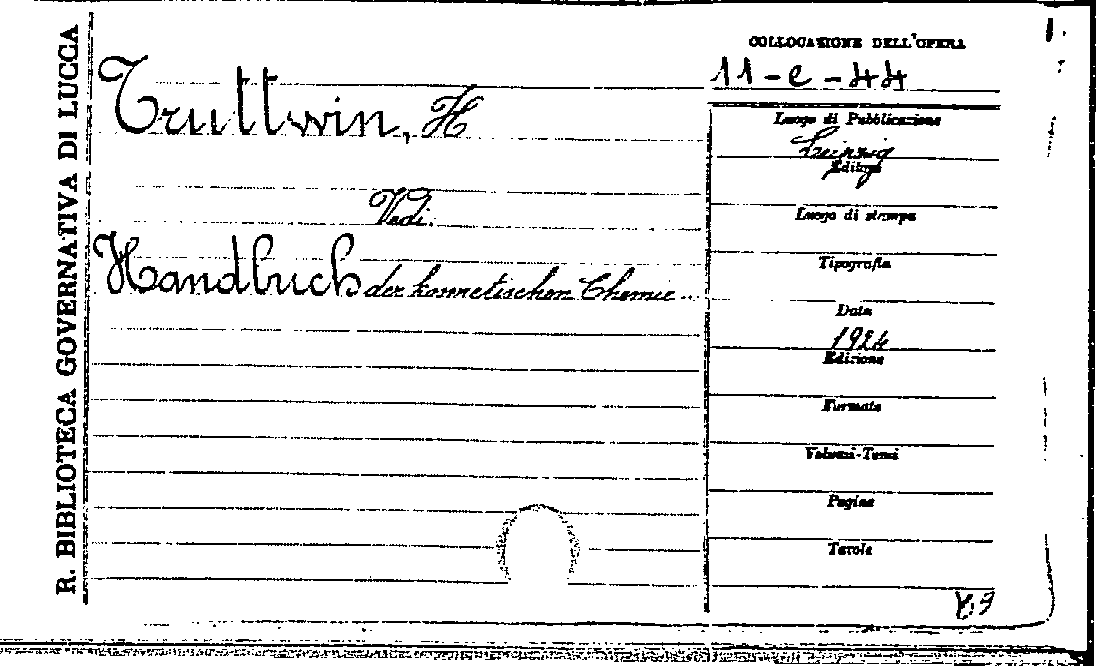 R. BIBLIOTECA GOVERNATIVA DI LUCCA
COLLOCAZIONE DELL'OPERA
11-e-44
Truttwin, H
Vedi:
Handbuch der kosmetischen Chemie.
Luogo di Pubblicazione
Leipzig
Editore
Luogo di stampa
Tipografia
Data
1924
Edizione
Formato
Volumi-Tomi
Pagine
Tavole